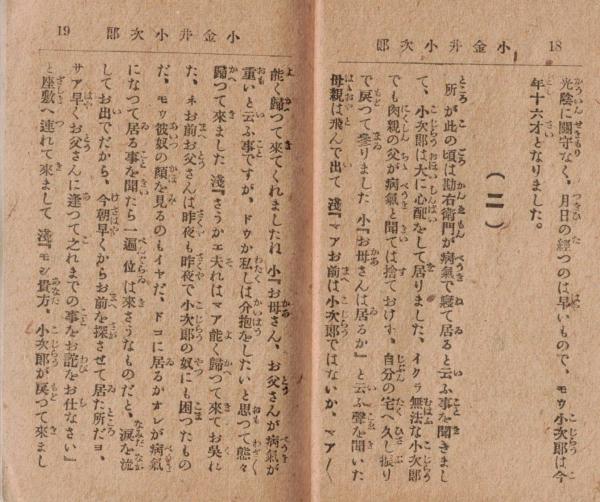 18
小金井小次郎
光陰に關守なく、月日の經つのは早いもので、モウ小次郎は今
年十六才となりました。
(二)
所が此の頃は勘右衛門が病氣で寢て居ると云ふ事を聞きまし
て、小次郎は大に心配をして居りました、イクラ無法な小次郎
でも肉親の父が病氣と聞ては捨ておけず、自分の宅へ久し振り
で戻つて參りました 小『お母さんは居るか』と云ふ聲を聞いた
母親は飛んで出て 淺『マアお前は小次郎ではないか、マア〳〵
19
小金井小次郎
能く歸つて來てくれましたね 小『お母さん、お父さんが病氣が
重いと云ふ事ですが、ドウか私しは介抱をしたいと思つて態々
歸つて來ました 淺『さうかエ夫れはマア能く歸つて來てお吳れ
た、ネお前お父さんは昨夜も昨夜で小次郎の奴にも困つたもの
だ、モウ彼奴の顏を見るのもイヤだ、ドコに居るかオレが病氣
になつて居る事を聞たら一遍位は來さうなものだと、淚を流
してお出でだから、今朝早くからお前を探させて居た所だヨ、
サア早くお父さんに逢つて之れまでの事をお詫をお仕なさい』
と座敷へ連れて來まして 淺『モシ貴方、小次郎が戾つて來まし